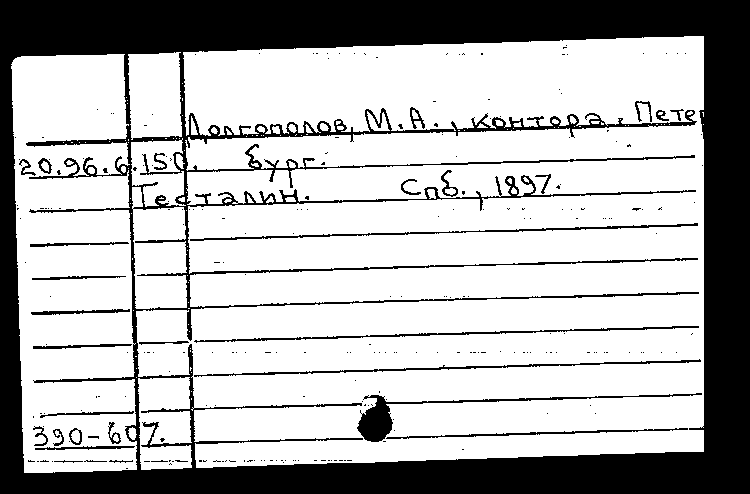 Долгополов, М.А., контора. Петер
20.96.6.150. бург.
Гесталин. Спб., 1897.
390-607.